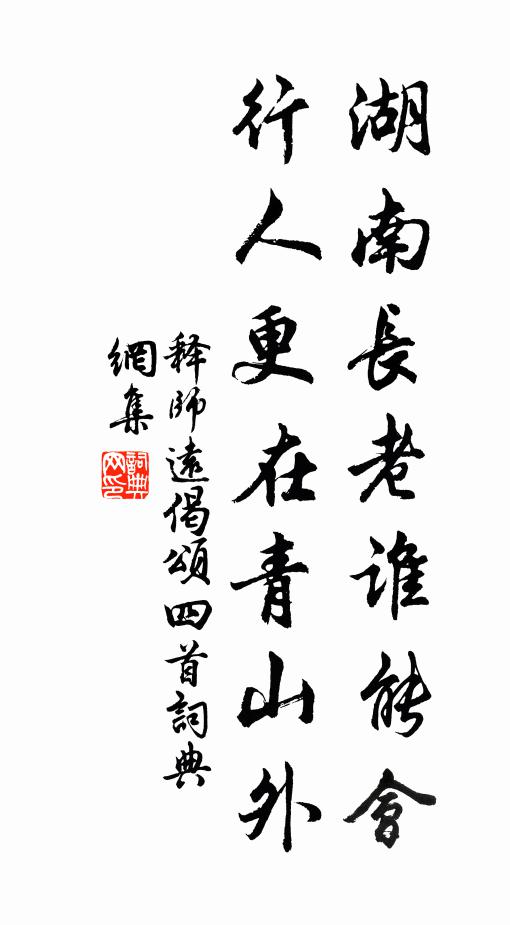 湖南長老誰能會
行人更在青山外
释師遠偈頌四首詞典
網集
詞典
网印